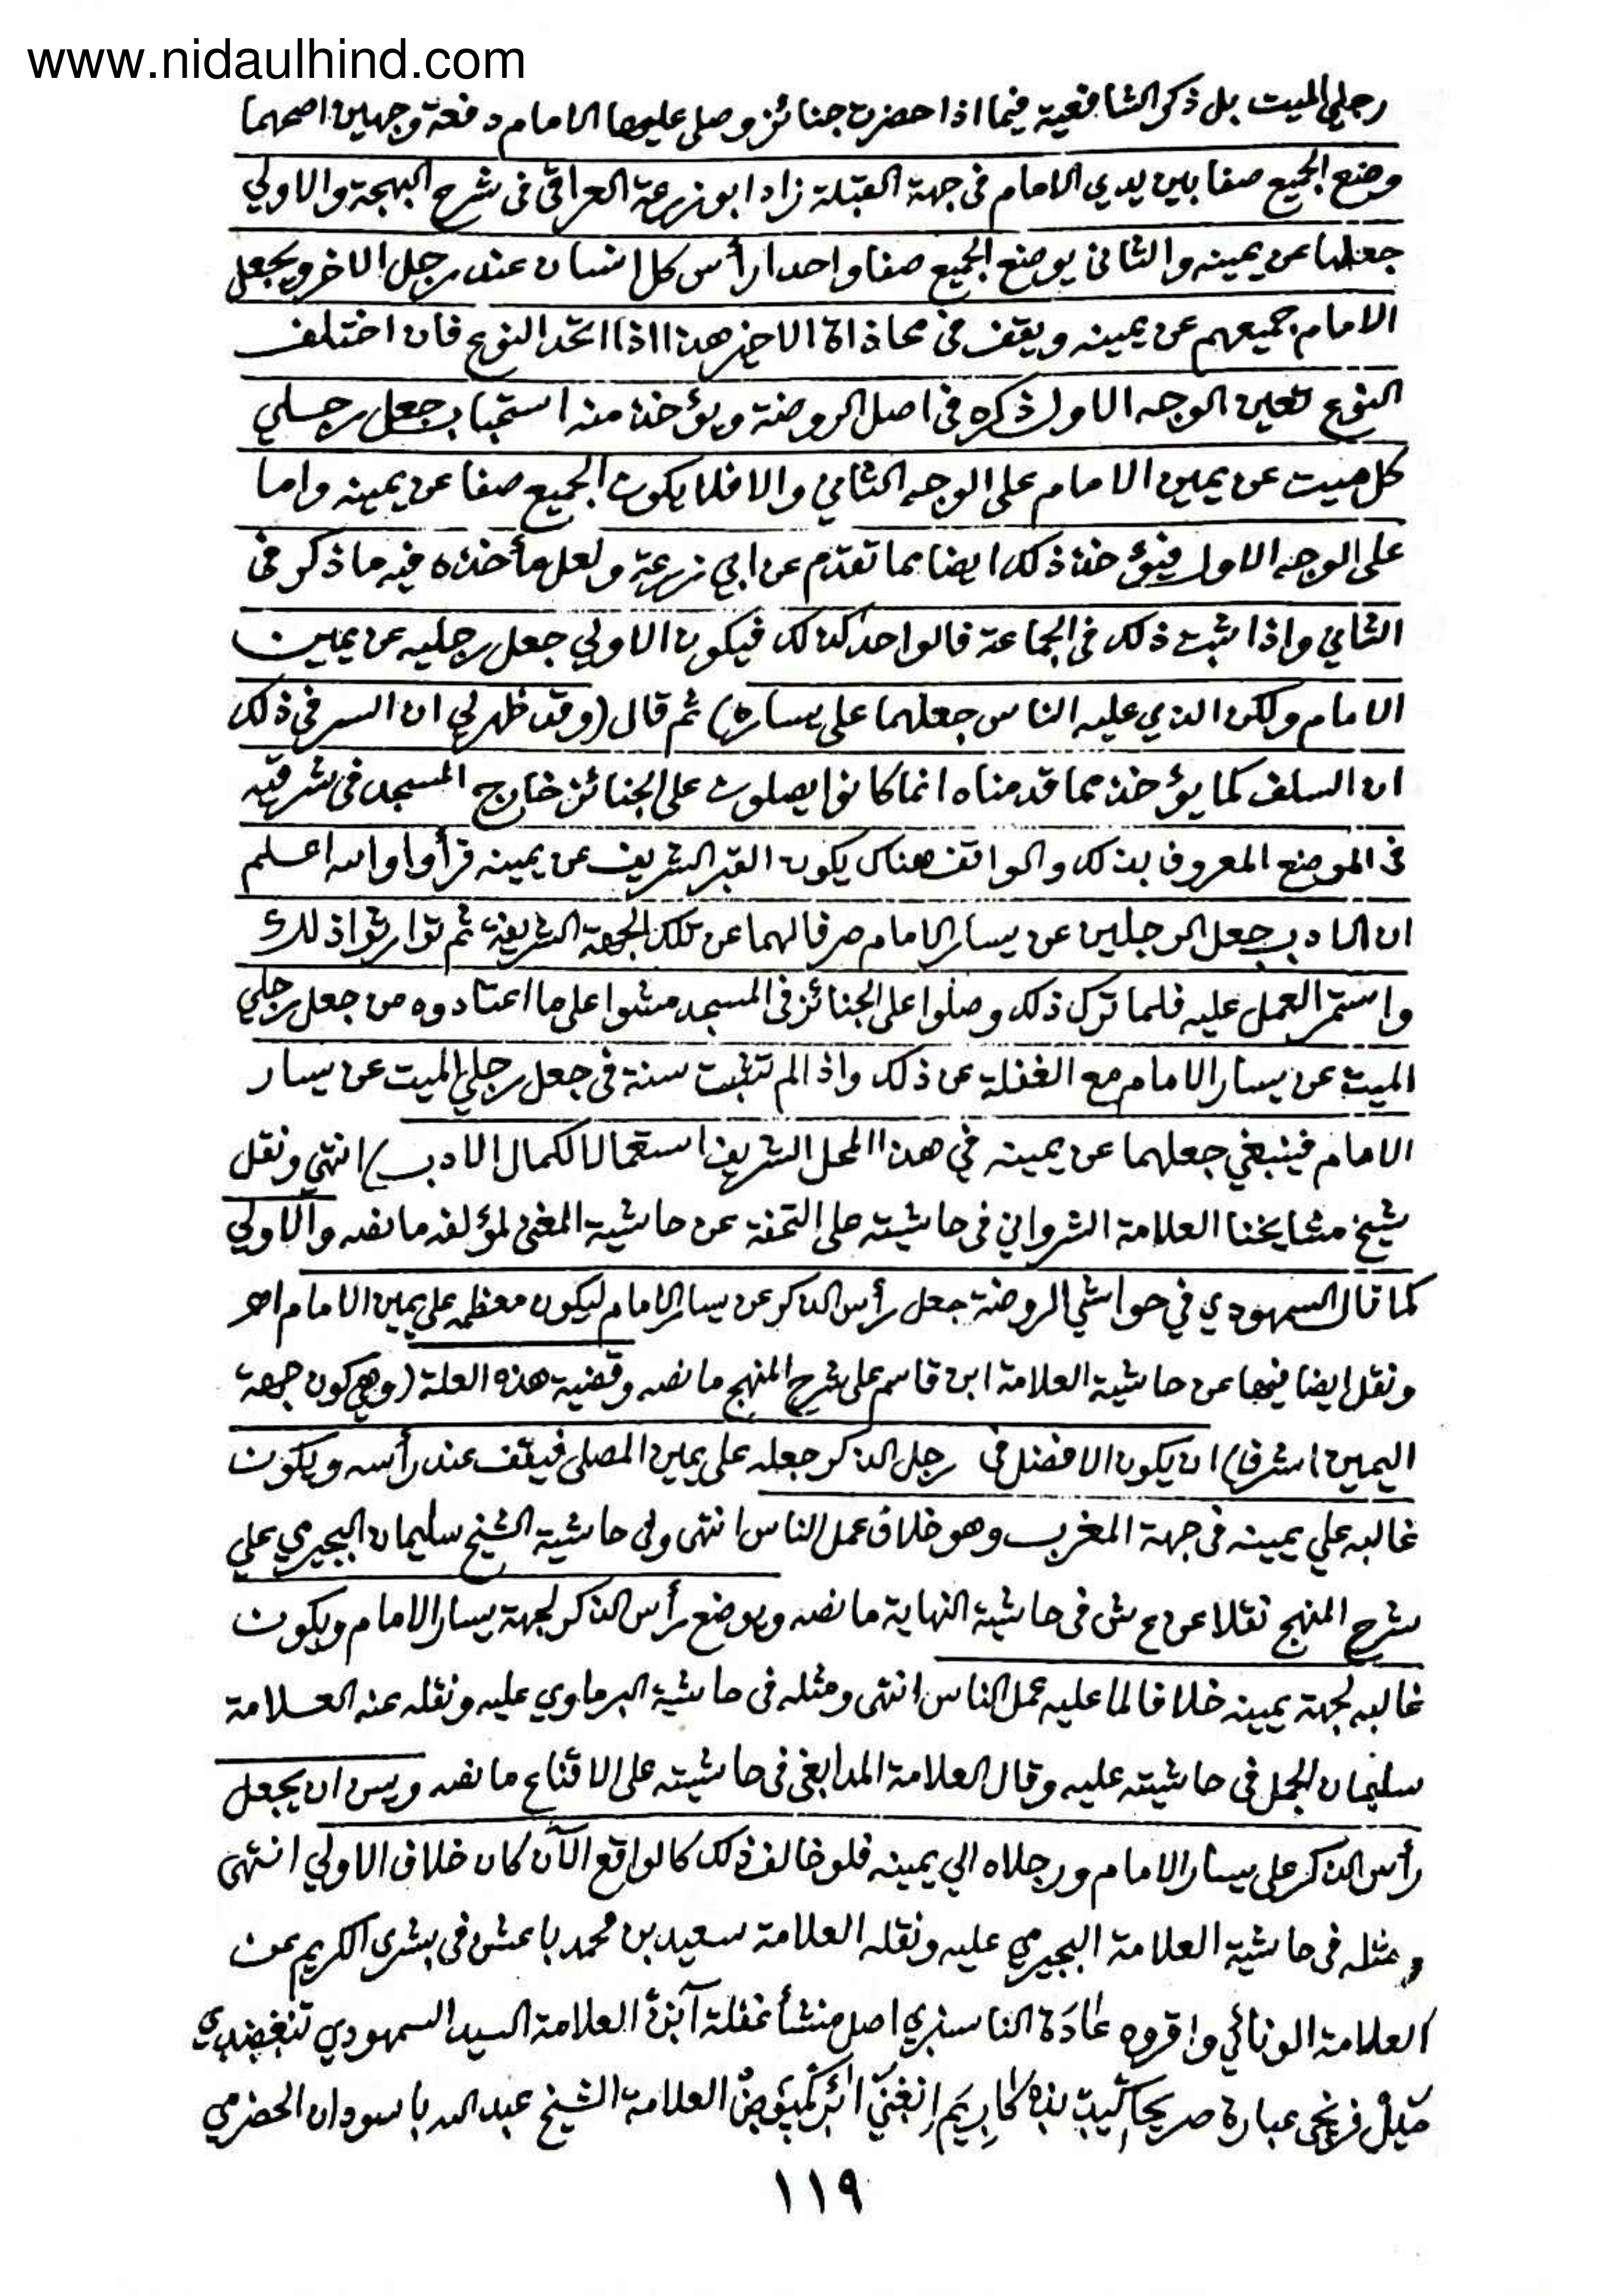 www.nidaulhind.com
رجلي الميت بل ذكر الشافعية فيما اذا حضرت جنائز وصلى عليها الامام دفعة وجهين اصحهما
وضع الجميع صفا بين يدي الامام في جهة القبلة زاد ابو زرعة العراقي في شرح البهجة والاولي
جعلها عن يمينه والثاني يوضع الجميع صفا واحدا رأس كل انسان عند رجل الاخر ويجعل
الامام جميعهم عن يمينه ويقف في محاذاة الاخير هذا اذا اتحد النوع فان اختلف
النوع تعين الوجه الاول ذكره في اصل الروضة ويؤخذ منه استحباب جعل رجلي
كل ميت عن يمين الامام على الوجه الثاني والا فلا يكون الجميع صفا عن يمينه واما
على الوجه الاول فيؤخذ ذلك ايضا مما تقدم عن ابي زرعة ولعل مأخذه فيه ما ذكر في
الثاني واذا ثبت ذلك في الجماعة فالواحد كذلك فيكون الاولي جعل رجليه عن يمين
الامام ولكن الذي عليه الناس جعلهما على يساره) ثم قال (وقد ظهر لي ان السر في ذلك
ان السلف كما يؤخذ مما قدمناه انما كانوا يصلون على الجنائز خارج المسجد في شرقيه
في الموضع المعروف بذلك والواقف هناك يكون القبر الشريف عن يمينه فرأوا والله اعلم
ان الادب جعل الرجلين عن يسار الامام صرفا لهما عن تلك الجهة الشريفة ثم توارثوا ذلك
واستمر العمل عليه فلما ترك ذلك وصلوا على الجنائز في المسجد مشوا على ما اعتادوه من جعل رجلي
الميت عن يسار الامام مع الغفلة عن ذلك واذا لم تثبت سنة في جعل رجلي الميت عن يسار
الامام فينبغي جعلهما عن يمينه في هذا المحل الشريف استعمالا لكمال الادب) انتهي ونقل
شيخ مشايخنا العلامة الشرواني في حاشيته على التحفة عن حاشية المغني لمؤلفه ما نصه والاولي
كما قال السمهودي في حواشي الروضة جعل رأس الذكر عن يسار الامام ليكون معظمه على يمين الامام اهـ
ونقل ايضا فيها عن حاشية العلامة ابن قاسم على شرح المنهج ما نصه وقضية هذه العلة (وهي كون جهة
اليمين اشرف) ان يكون الافضل في رجل الذكر جعله على يمين المصلى فيقف عند رأسه ويكون
غالبه علي يمينه في جهة المغرب وهو خلاف عمل الناس انتهى وفي حاشية الشيخ سليمان البجيرمي علي
شرح المنهج نقلا عن ع ش في حاشية النهاية ما نصه ويوضع رأس الذكر لجهة يسار الامام ويكون
غالبه لجهة يمينه خلافا لما عليه عمل الناس انتهى ومثله في حاشية البرماوي عليه ونقله عنه العلامة
سليمان الجمل في حاشيته عليه وقال العلامة المدابغي في حاشيته على الاقناع ما نصه ويسن ان يجعل
رأس الذكر على يسار الامام ورجلاه الي يمينه فلو خالف ذلك كالواقع الآن كان خلاف الاولي انتهى
ومثله في حاشية العلامة البجيرمي عليه ونقله العلامة سعيد بن محمد باعشن في بشرى الكريم عن
العلامة الونائي واقروه عادة الناسنري اصل منشأ غفلة آبذة العلامة السيد السمهودي
عبارة صريحا العلامة الشيخ عبد الله باسودان الحضرمي
١١٩